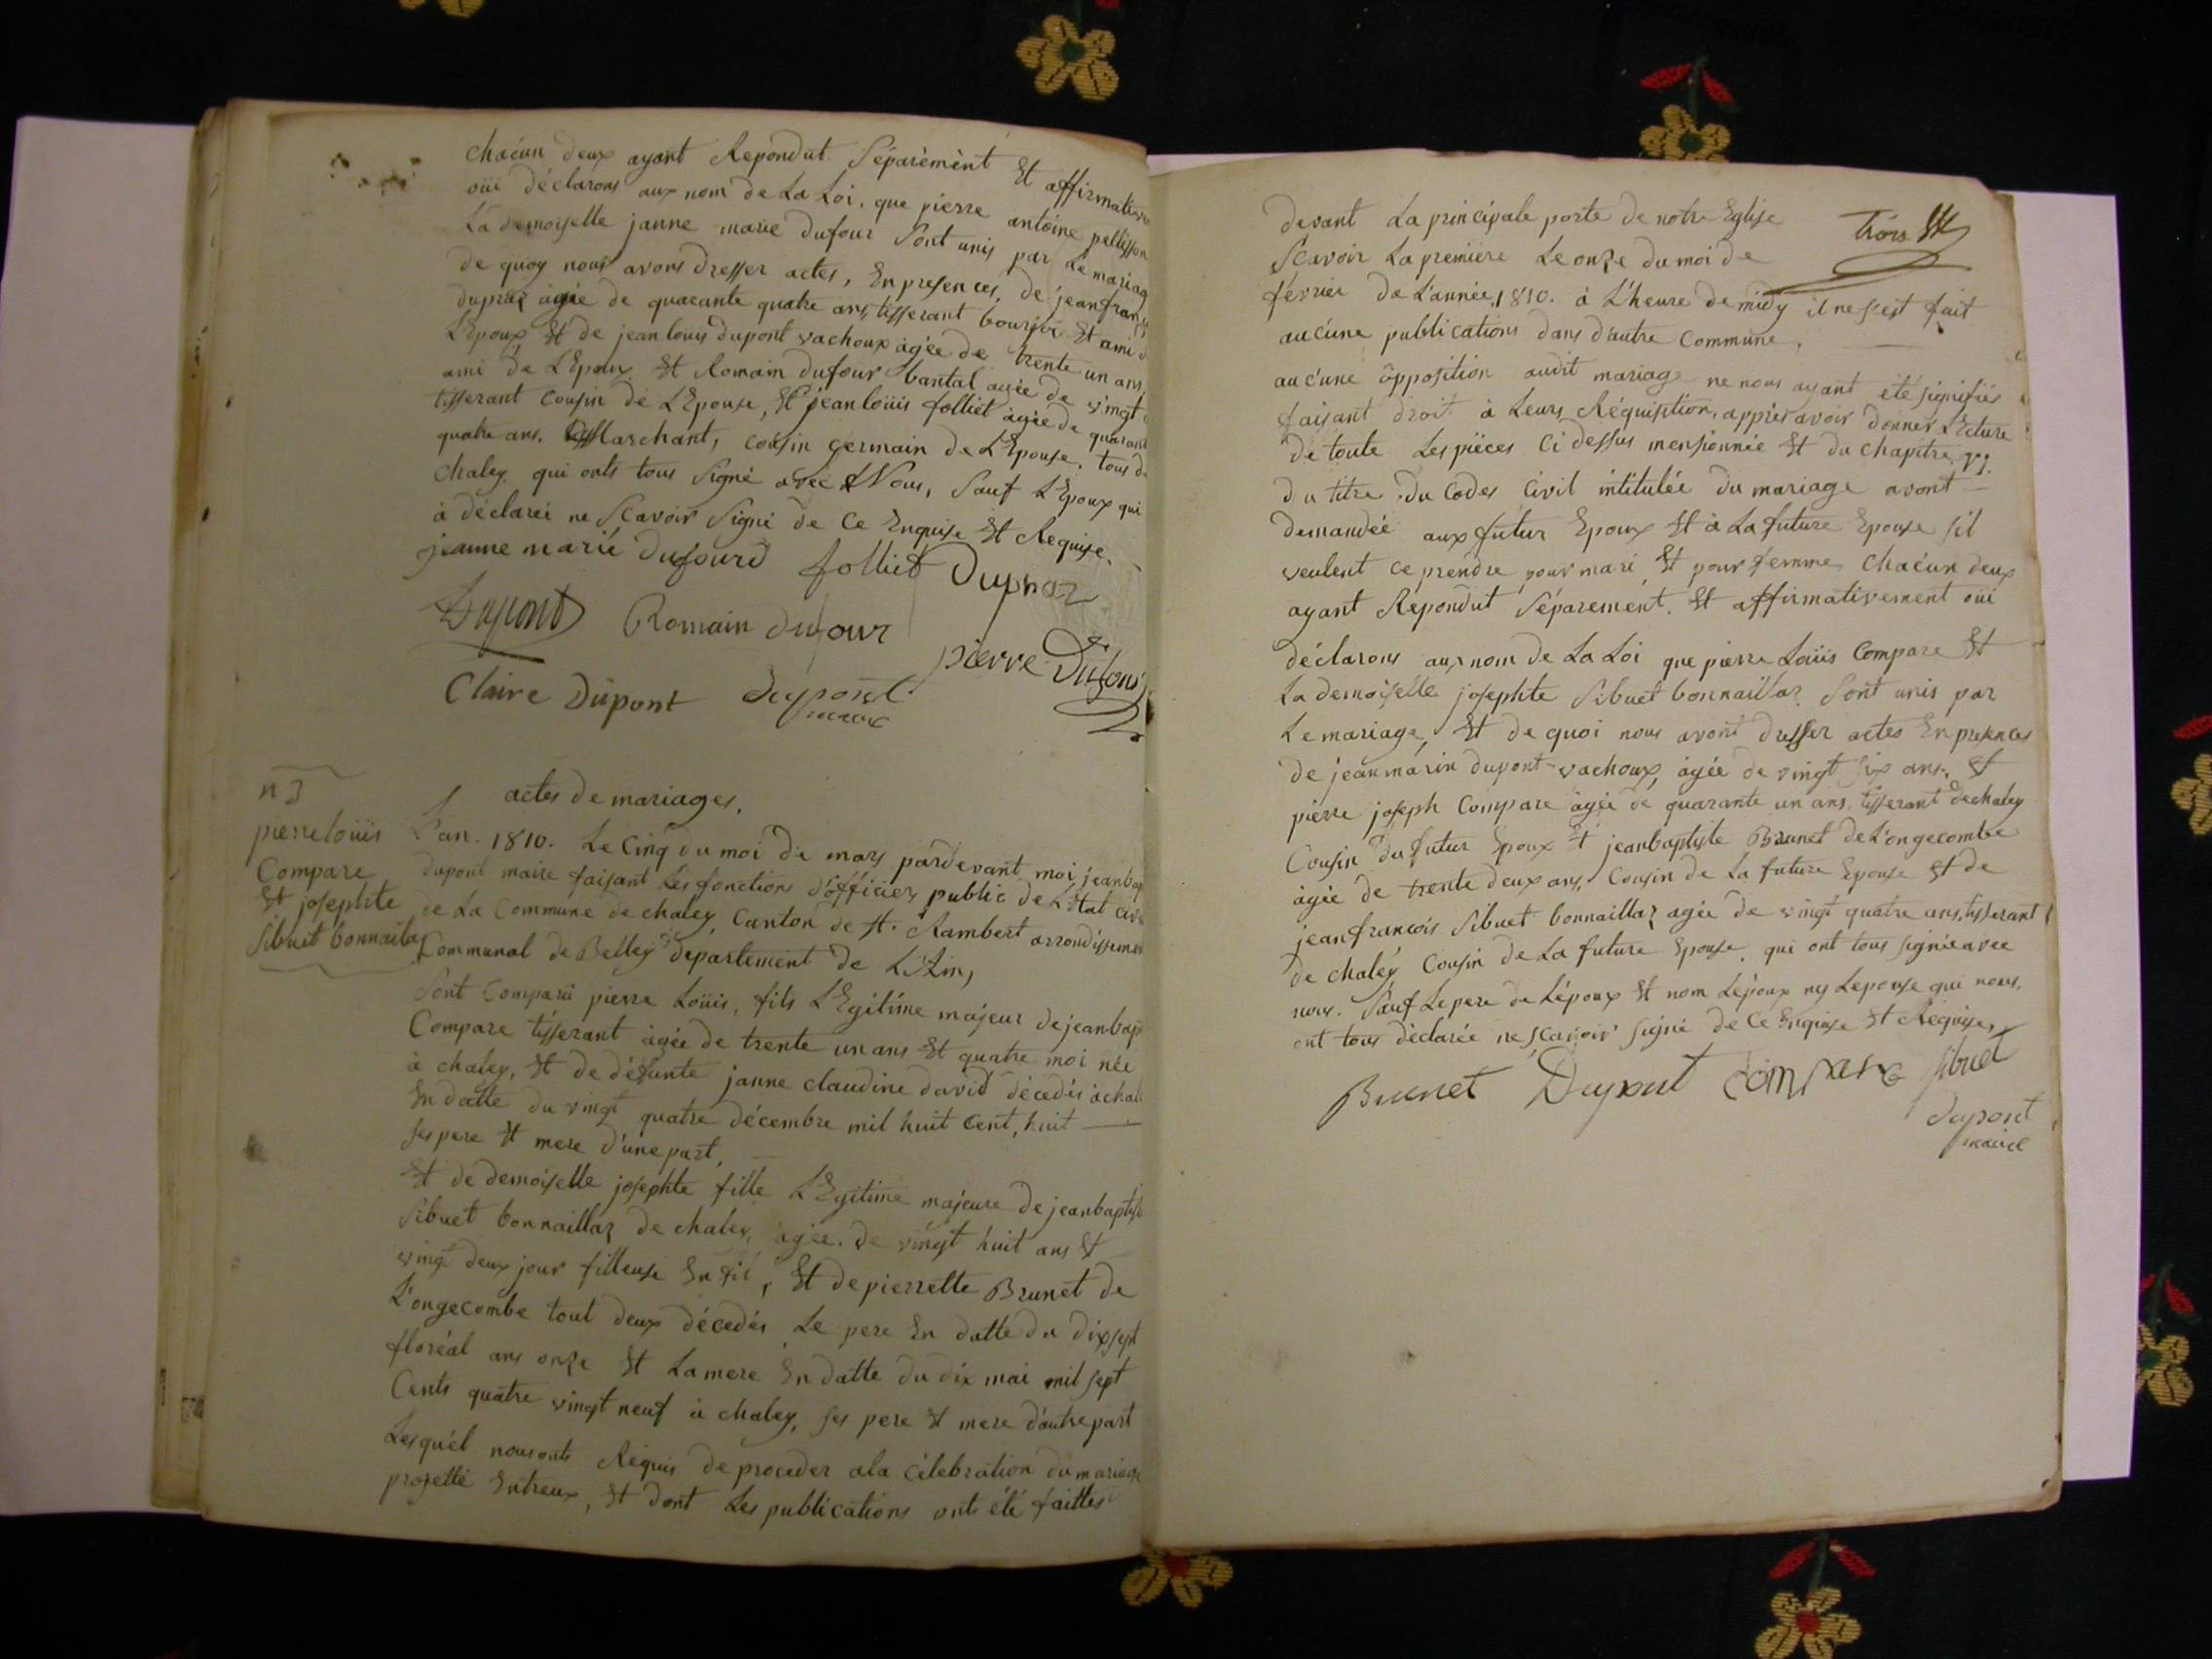 chacun deux ayant Repondut Séparémént Et affirmative
oüi déclarons aux nom de La Loi, que pierre antoine pellisson
La demoiselle janne marie dufour Sont unis par Le mariag
de quoy nous avons dresser actes, En presences, de jeanfran
dupraz agée de quarante quatre ans, tisserant bourjoi Et ami d
L'Epoux Et de jean louis dupont vachoux agée de trente un ans
ami de L'Epoux Et Romain dufour bantal agée de vingt
tisserant Cousin de L'Epouse, Et jean loüis folliet agée de quarant
quatre ans, Marchant, cousin germain de L'Epouse, tous de
Chaley qui onts tous Signé avéc Nous, Sauf L'Epoux qui
à déclarée ne Scavoir Signé de Ce Enquise Et Requise.
jeanne marie dufourd folliet Dupraz
Dupont Romain dufour
pierre Dufour
Claire Dupont dupont
maire
n 3
actes de mariages.
pierre loüis
Compare
Et josephte
Sibuet bonnaillaz
L'an. 1810. Le Cinq du moi de mars pardevant moi jeanbap
dupont maire faisant Les fonctions d'officier public de L'Etat civ
de La Commune de chaley, Canton de St. Rambert arrondissemen
Communal de Belley département de L'Ain,
Sont Comparü pierre Loüis, fils LEgitime majeur de jeanbap
Compare tisserant agée de trente un ans Et quatre moi née
à chaley, Et de défunte janne claudine david décedés à chal
En datte du vingt quatre décembre mil huit Cent, huit
ses pere Et mere d'une part,
Et de demoiselle josephte fille LEgitime majeure de jeanbaptist
Sibuet bonnaillaz de chaley, agée. de vingt huit ans Et
vingt deux jour filleuse En fil, Et de pierrette Brunet de
L'ongecombe tout deux décedés Le pere En datte du dix sept
floréal ans onze Et La mere En datte du dix mai mil sept
Cents quatre vingt neuf à chaley, ses pere Et mere d'autre part
Lesquél nous onts Réquis de proceder a la Célébration du mariage
projetté Entreux, Et dont Les publications onts été faittes
devant La principale porte de notre Eglise
Trois
Scavoir La premiere Le onze du moi de
fevrier de L'année, 1810. à L'heure de midy il ne s'est fait
aucúne publications dans d'autre Commune,
aucúne opposition audit mariage ne nous ayant été signifiés
faisant droit à Leurs Réquisition, apprés avoir donner LEcture
de toute Les piéces Ci dessus mensionnée Et du Chapitre VI.
du titre. du Codes Civil intitulée du mariage avont
demandée aux futur Epoux Et à La future Epouse S'il
veulent Ce prendre pour mari Et pour femme Chacun deux
ayant Répondut Séparement. Et affirmativement oüi
déclarons aux nom de La Loi que pierre Loüis Compare Et
La demoiselle josephte Sibuet bonnaillaz Sont unis par
Le mariage, Et de quoi nous avont dresser actes En presences
de jean marin dupont-vachoux, agée de vingt six ans, Et
pierre joseph Compare agée de quarante un ans, tisserant de chaley
Cousin du futur Epoux Et jeanbaptiste Brunet de L'ongecombe
agée de trente deux ans, Cousin de La future Epouse Et de
jeanfrancois Sibuet bonnaillaz agée de vingt quatre ans, tisserant
de chaley Cousin de La future Epouse, qui ont tous signée avec
nous. Sauf Le pere de Lépoux Et nom Lépoux ny Lepouse qui nous,
ont tous déclarée ne Scavoir Signé de Ce Enquise Et Réquise,
Brunet Dupont Compare Sibuet
dupont
maire